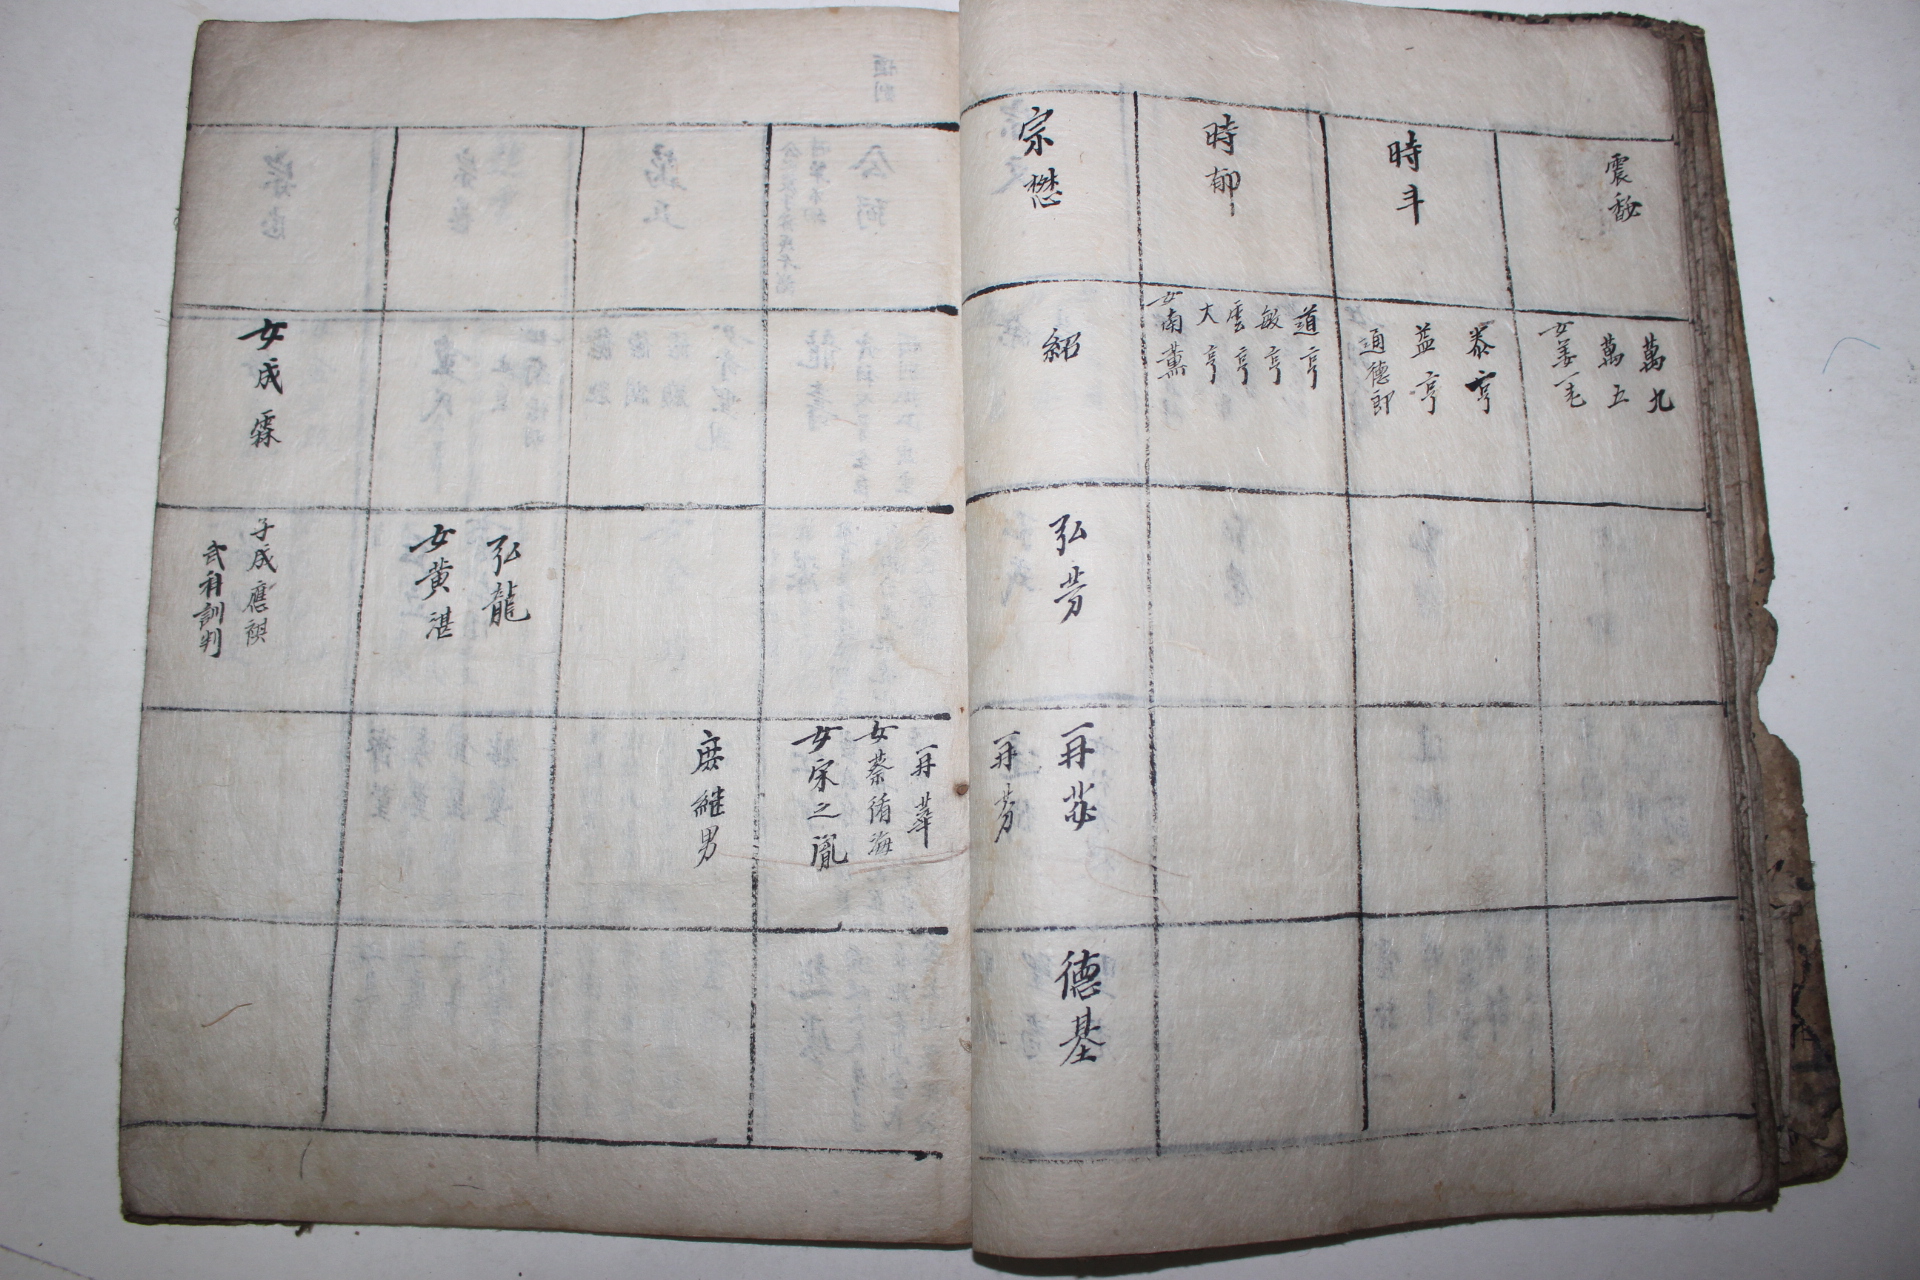 震馝
時斗
時郁
宗懋
萬九
萬五
女姜一毛
泰亨
益亨
通德郎
道亨
敏亨
雲亨
大亨
女南薰
紹
弘芳
再苾
再芬
德基
再華
女蔡侑海
女宋之胤
庶継男
弘龍
女黃湛
女成霖
子成應祺
武科訓判